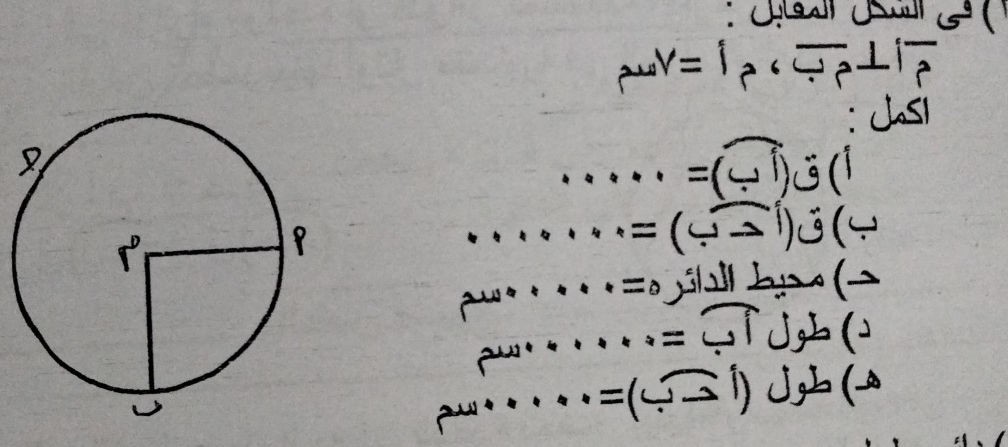 ) فى الشكل المقابل :
م أ ⊥ م ب ، م أ = ٧سم
اكمل :
أ) ق(أ ب) = .....
ب) ق(أ حـ ب) = .......
حـ) محيط الدائره = ......سم
د) طول أ ب = .......سم
هـ) طول (أ حـ ب) = ......سم
حـ
م
أ
ب